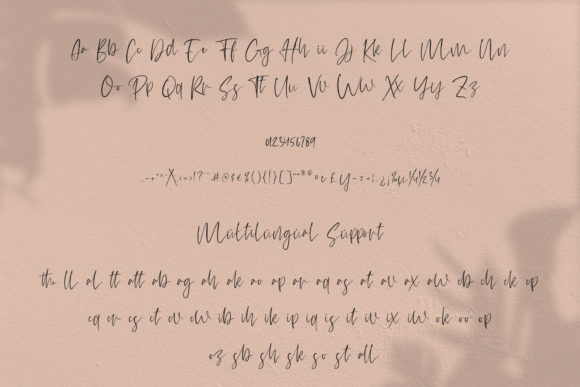 Aa Bb Cc Dd Ee Ff Gg Hh ii Jj Kk Ll Mm Nn
Oo Pp Qq Rr Ss Tt Uu Vv Ww Xx Yy Zz
0123456789
Multilangual Support
thu ll al tt att ab ag ah ak ao ap ar aq as at av ax aw cb ch ck cp
cq cr cs ct cv cw ib ih ik ip iq is it iv ix iw ok oo op
oz sb sh sk so st all